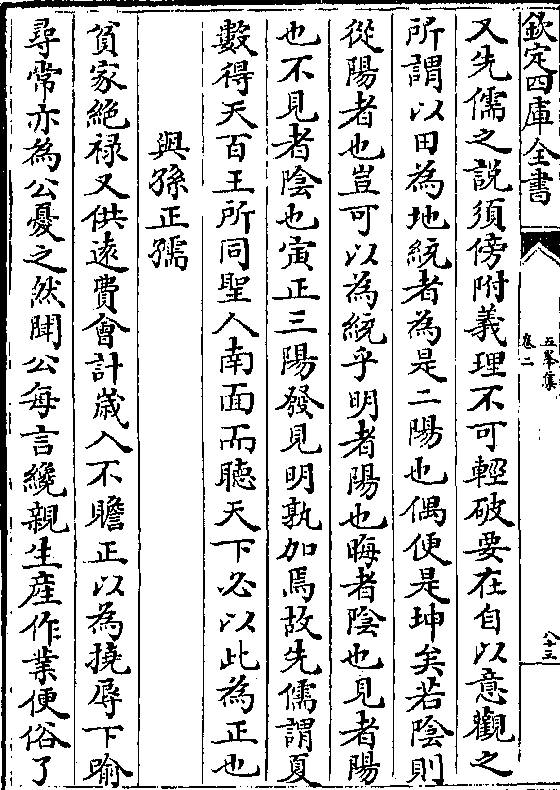 欽定四庫全書
五峯集
卷二
八十三
又先儒之説須傍附義理不可輕破要在自以意觀之
所謂以田為地統者為是二陽也偶便是坤矣若陰則
從陽者也豈可以為統乎明者陽也晦者陰也見者陽
也不見者陰也寅正三陽發見明孰加焉故先儒謂夏
數得天百王所同聖人南面而聽天下必以此為正也
與孫正孺
貧家絶祿又供遠費會計歳入不贍正以為撓辱下喻
尋常亦為公憂之然聞公每言纔親生産作業便俗了